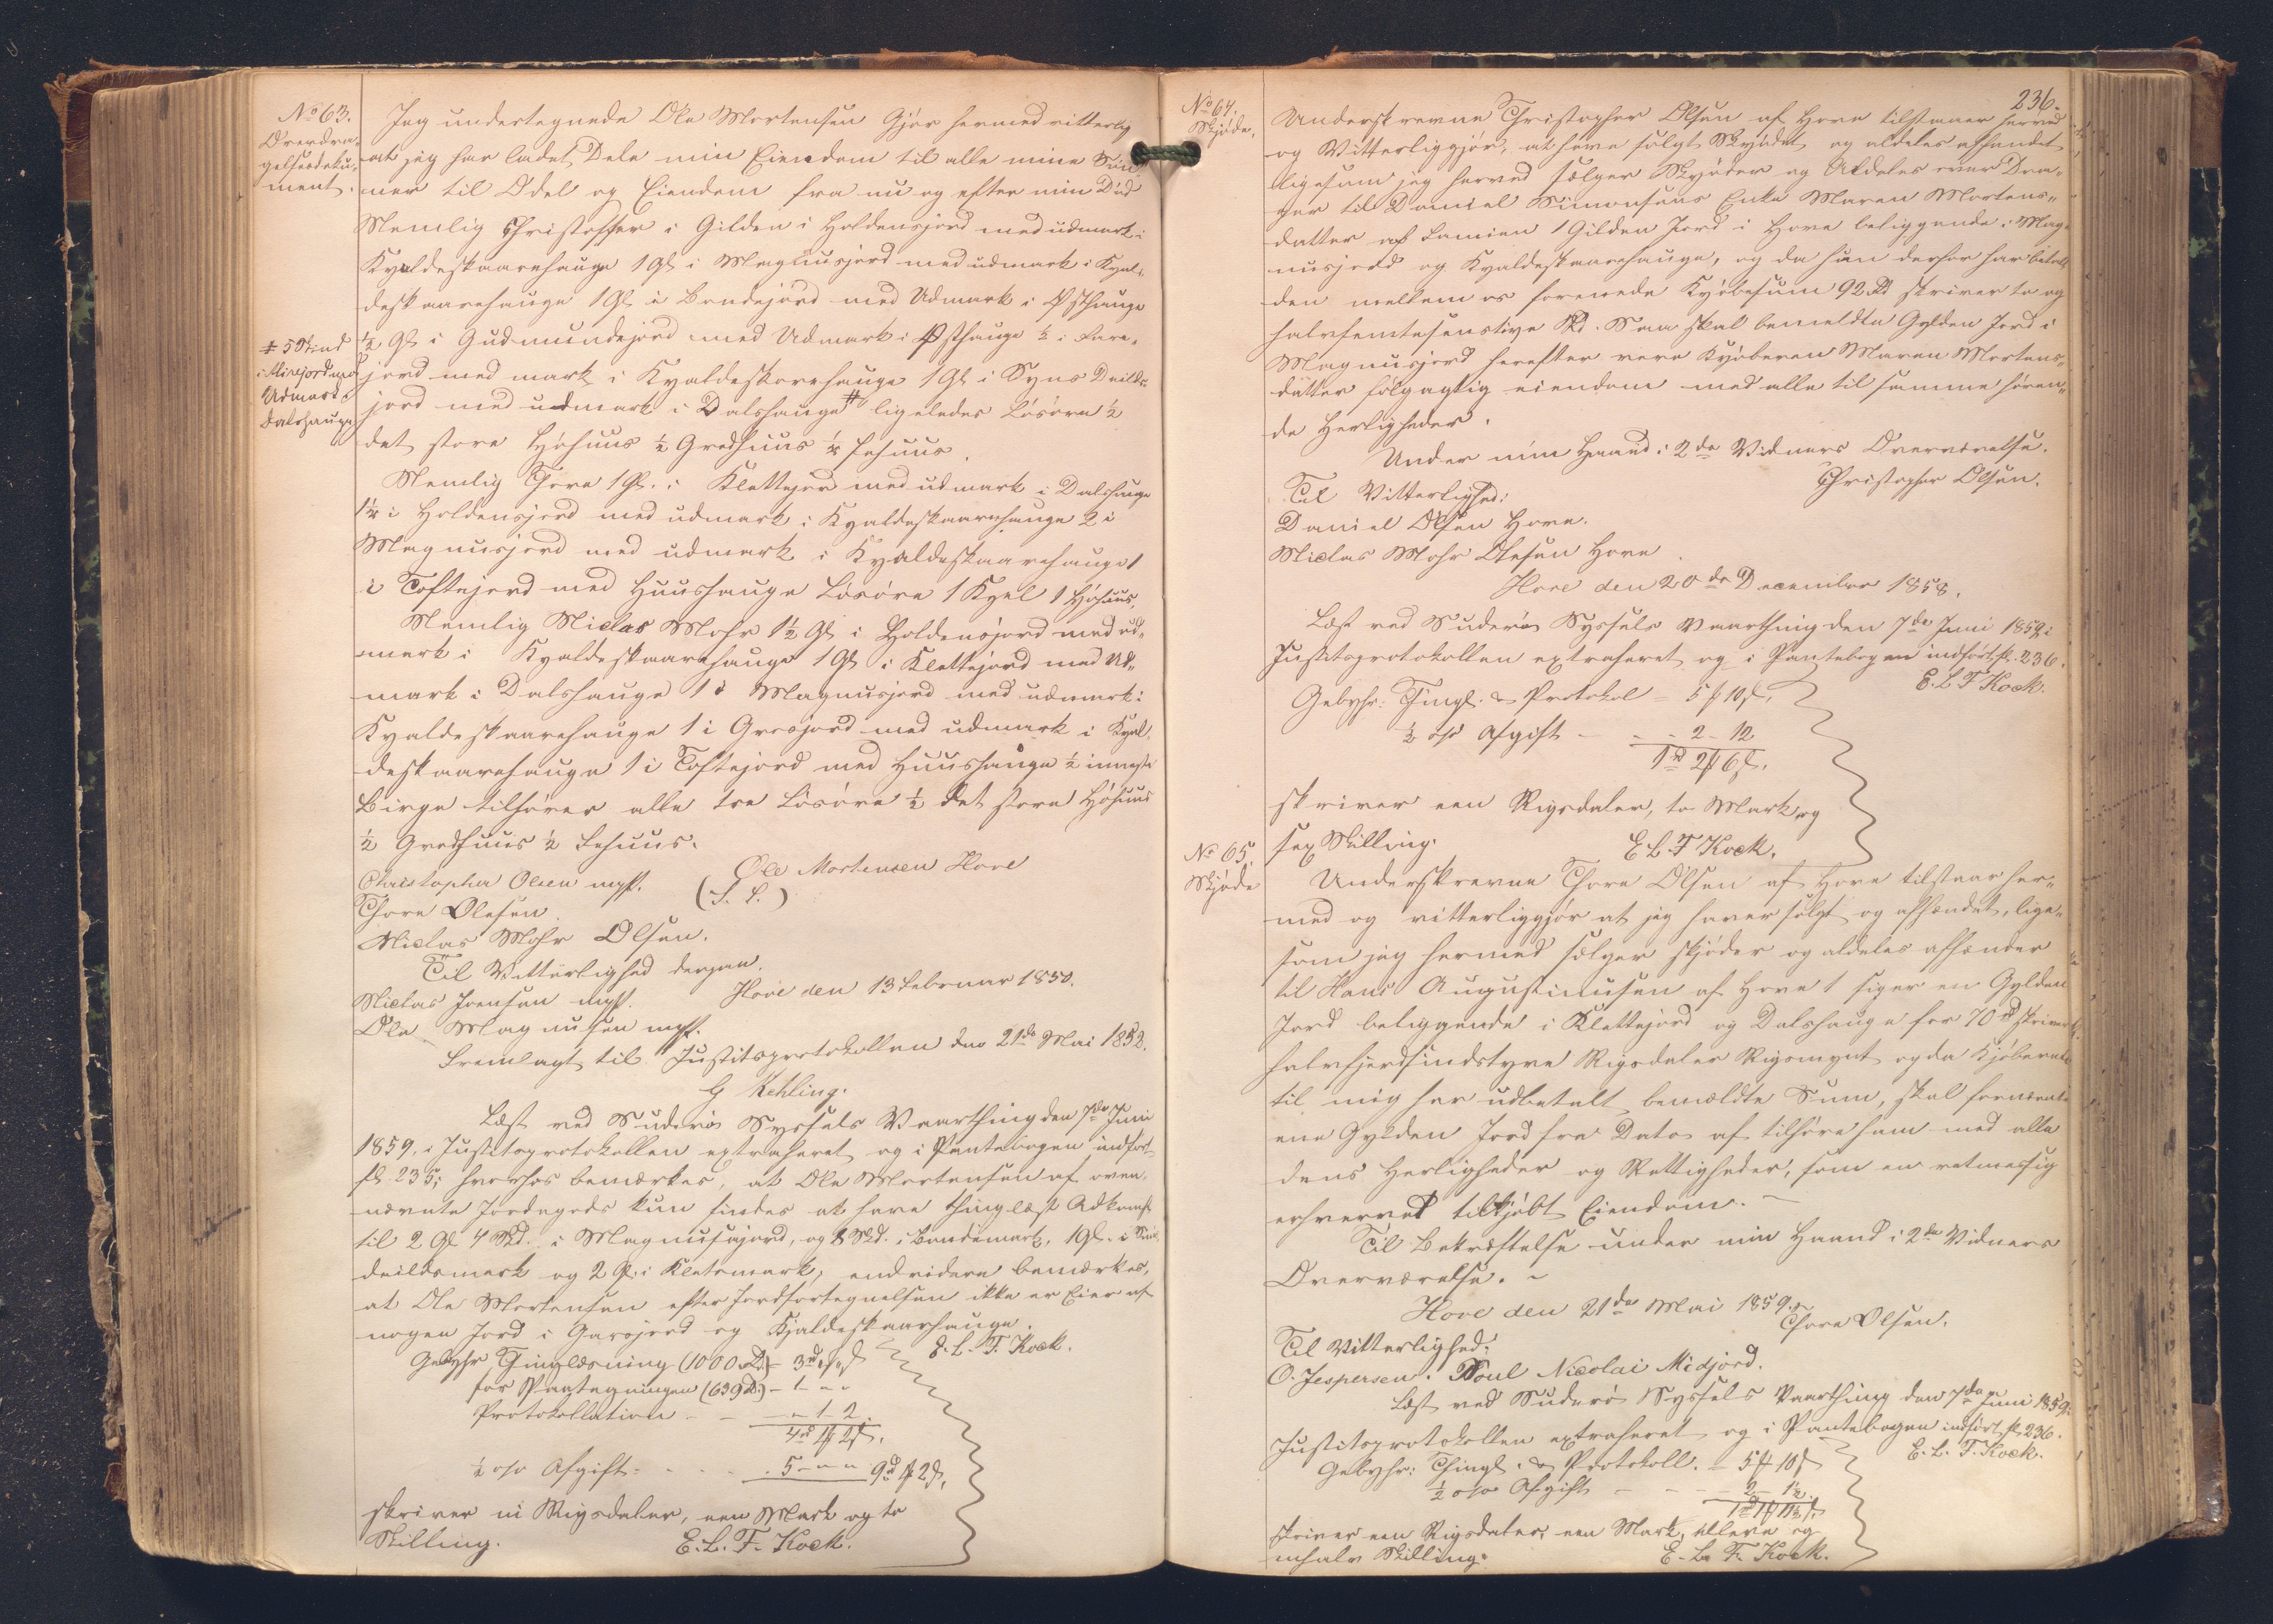 No 63.
Overdra-
gelsesdoku-
ment.
Jeg undertegnede Ole Mortensen Gjør hermed vitterlig
at jeg har ladet Dele min Eiendom til alle mine Søn
ner til Odel og Eiendom fra nu og efter min Død
Nemlig Christoffer i Gilden i Holdensjord med udmark i
Kvaldeskaarehauge 1 Gl i Magnusjord med udmark i Kval-
deskaarehauge 1 Gl i Bondejord med Udmark i Østhauge
½ Gl i Gudmundejord med Udmark i Østhauge ½ i Fare-
jord med mark i Kvaldeskorehauge 1 Gl i Syns Deilds
jord med udmark i Dalshauge # ligeledes Løsøre ½
det store Høhuus ½ Gredhuus ½ Fehuus.
# 5 Skind
i Mirejord med
Udmark i
Dalshauge
Nemlig Thore 1 Gl. i Klettejord med udmark i Dalshauge
1½ i Holdensjord med udmark i Kvaldeskaarehauge 2 i
Magnusjord med udmark i Kvaldeskaarehauge 1
i Toftejord med Huushauge Løsøre 1 Kjel 1 Høhuus.
Nemlig Niclas Mohr 1½ Gl i Holdensjord med ud-
mark i Kvaldeskaarehauge 1 Gl i Klettejord med Ud-
mark i Dalshauge 1 i Magnusjord med udmark i
Kvaldeskaarehauge 1 i Gresjord med udmark i Kval-
deskaarehauge 1 i Toftejord med Huushauge ½ inneste
Birge tilhører alle tre Løsøre ½ det store Høhuus
½ Gredhuus ½ Fehuus.
Ole Mortensen Hove
(L. S.)
Christopher Olsen mpp.
Thore Olesen.
Niclas Mohr Olsen.
Til Vitterlighed derpaa.
Niclas Joensen mpp. Hove den 13 Februar 1850.
Ole Magnussen mpp.
Fremlagt til Justitsprotokollen den 21de Mai 1852.
G Kehling.
Læst ved Suderø Syssels Vaarthing den 7de Juni
1859, i Justitsprotokollen extraheret og i Pantebogen indført
fl. 235; hvorhos bemærkes, at Ole Mortensen af oven-
nævnte Jordegods kun findes at have thinglæst Adkomst
til 2 Gl 4 Skd. i Magnusajord, og 8 Skd. i Bondemark, 1 Gl. i Sins
deildsmark og 2 Gl. i Kletsmark; endvidere bemærkes,
at Ole Mortensen efter Jordfortegnelsen ikke er Eier af
nogen Jord i Garsjord og Kjaldeskaarhauge.
E. L. F. Kock.
Gebyhr Tinglæsning (1000 Rd) 3rd " "
for Paategningen (639 Rd) - 1 - " "
Protokollation - - - " - 1 - 2.
4rd 1 2 s.
½ o/o Afgift: - - - 5 - " - " 9rd 1 2 s.
skriver ni Rigsdaler, een Mark og to
Skilling. E. L. F. Kock.
236.
No 64.
Skjøde.
Underskrevne Christopher Olsen af Hove tilstaaer herved
og Vitterliggjør, at have solgt Skjødet og aldeles afhændet
ligesom jeg herved sælger Skjøder og Aldeles over Dra-
ger til Daniel Simonsens Enke Maren Mortens-
datter af Famien 1 Gilden Jord i Hove beliggende i Mag-
nusjord og Kvaldeskaarehauge, og da hun derfor har betalt
den mellem os forenede Kjøbesum 92 Rd skriver to og
halvfemtesenstive Rd. Saa skal bemeldte Gylden Jord i
Magnusjord herefter være Kjøberen Maren Mortens-
datter følgagtig eiendom med alle til samme høren-
de Herligheder.
Under min Haand i 2de Vidners Overværelse.
Christopher Olsen.
Til Vitterlighed:
Daniel Olsen Hove.
Niclas Mohr Olesen Hove.
Hove den 20de December 1858.
Læst ved Suderø Syssels Vaarthing den 7de Juni 1859, i
Justitsprotokollen extraheret og i Pantebogen indført fl. 236.
E. L. F Kock.
Gebyhr: Tingl. & Protokol - 5 10 s.
½ o/o Afgift - - - 2 - 12
1rd 2 6 s.
skriver een Rigsdaler, to Mark og
sex Skilling. E L F Kock.
No 65.
Skjøde
Underskrevne Thore Olsen af Hove tilstaar her-
med og vitterliggjør at jeg haver solgt og afhændet, lige-
som jeg hermed sælger skjøder og aldeles afhænder
til Hans Augustinusen af Hove 1 siger en Gylden
Jord beliggende i Klettejord og Dalshauge for 70 rd skriver
halvfjerdsindstyve Rigsdaler Rigsmynt og da Kjøberen
til mig har udbetalt bemældte Sum, skal fornævnte
ene Gylden Jord fra Dato af tilhøre ham med alle
dens Herligheder og Rettigheder, som en retmæssig
erhvervet tilkjøbt Eiendom. ~
Til Bekræftelse under min Haand i 2de Vidners
Overværelse. ~
Hove den 21de Mai 1859.
Thore Olsen.
Til Vitterlighed:
O. Jespersen. Poul Nicolai Midjord.
Læst ved Suderø Syssels Vaarthing den 7de Juni 1859, i
Justitsprotokollen extraheret og i Pantebogen indført fl 236.
E. L. F. Kock.
Gebyhr: Thingl. & Protokoll. - 5 10 s
½ o/o Afgift - - - 2 - 1½.
1rd 1 11½ s.
skriver een Rigsdaler, een Mark, elleve og
enhalv Skilling. E. L. F. Kock.